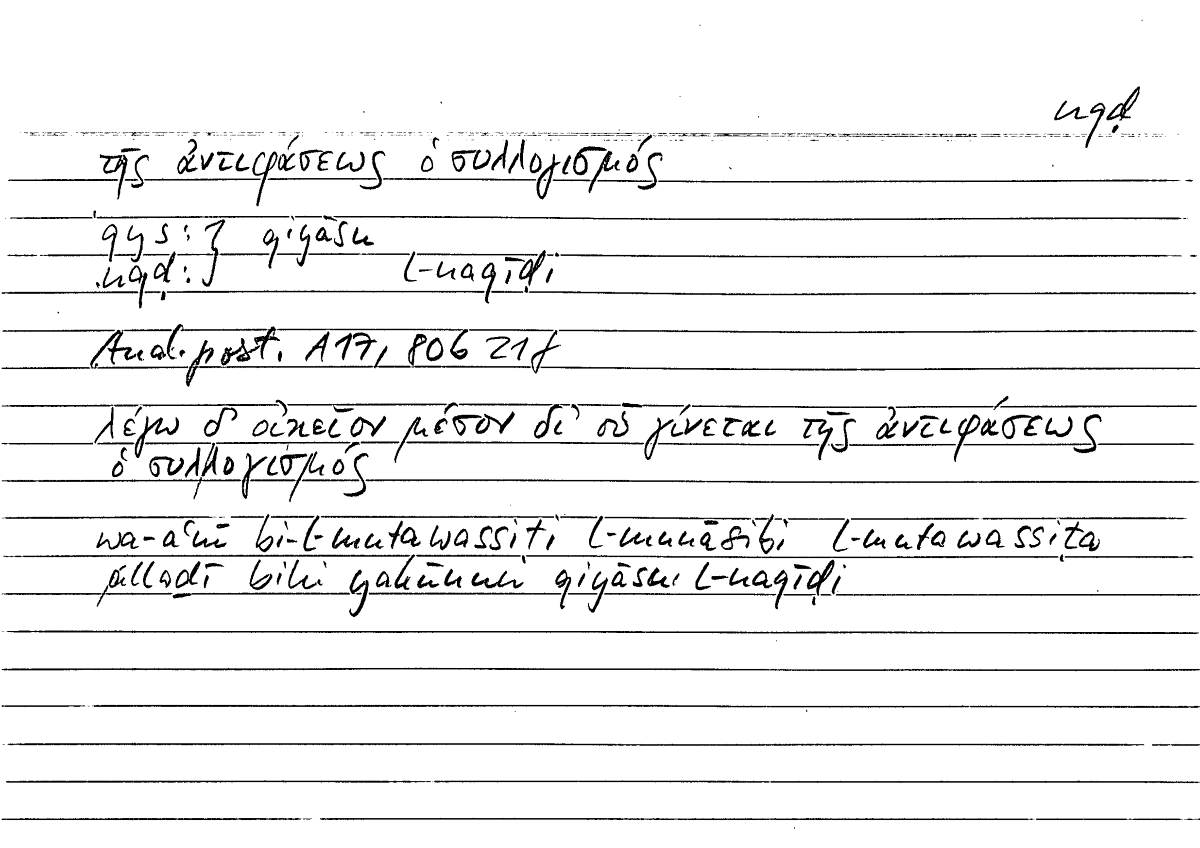 nqḍ
τῆς ἀντιφάσεως ὁ συλλογισμός
qys: } qiyāsu
nqḍ: } l-naqīḍi
Anal. post. A17, 80b 21f
λέγω δ' οἰκεῖον μέσον δι' οὗ γίνεται τῆς ἀντιφάσεως
ὁ συλλογισμός
wa-aʿnī bi-l-mutawassiṭi l-munāsibi l-mutawassiṭa
allaḏī bihi yakūnu qiyāsu l-naqīḍi